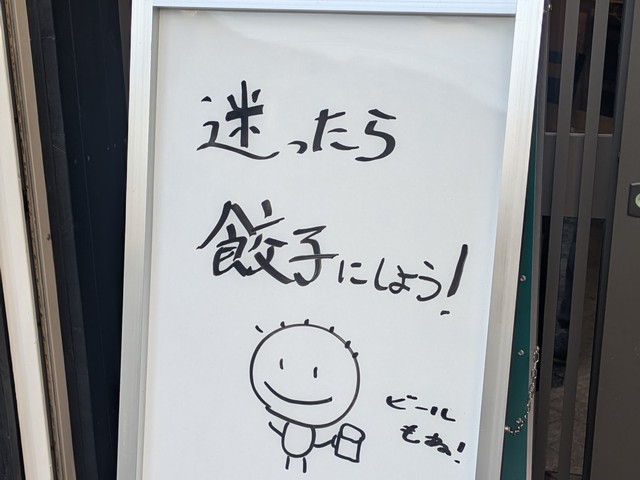 迷ったら
餃子にしよう!
ビール
もね!